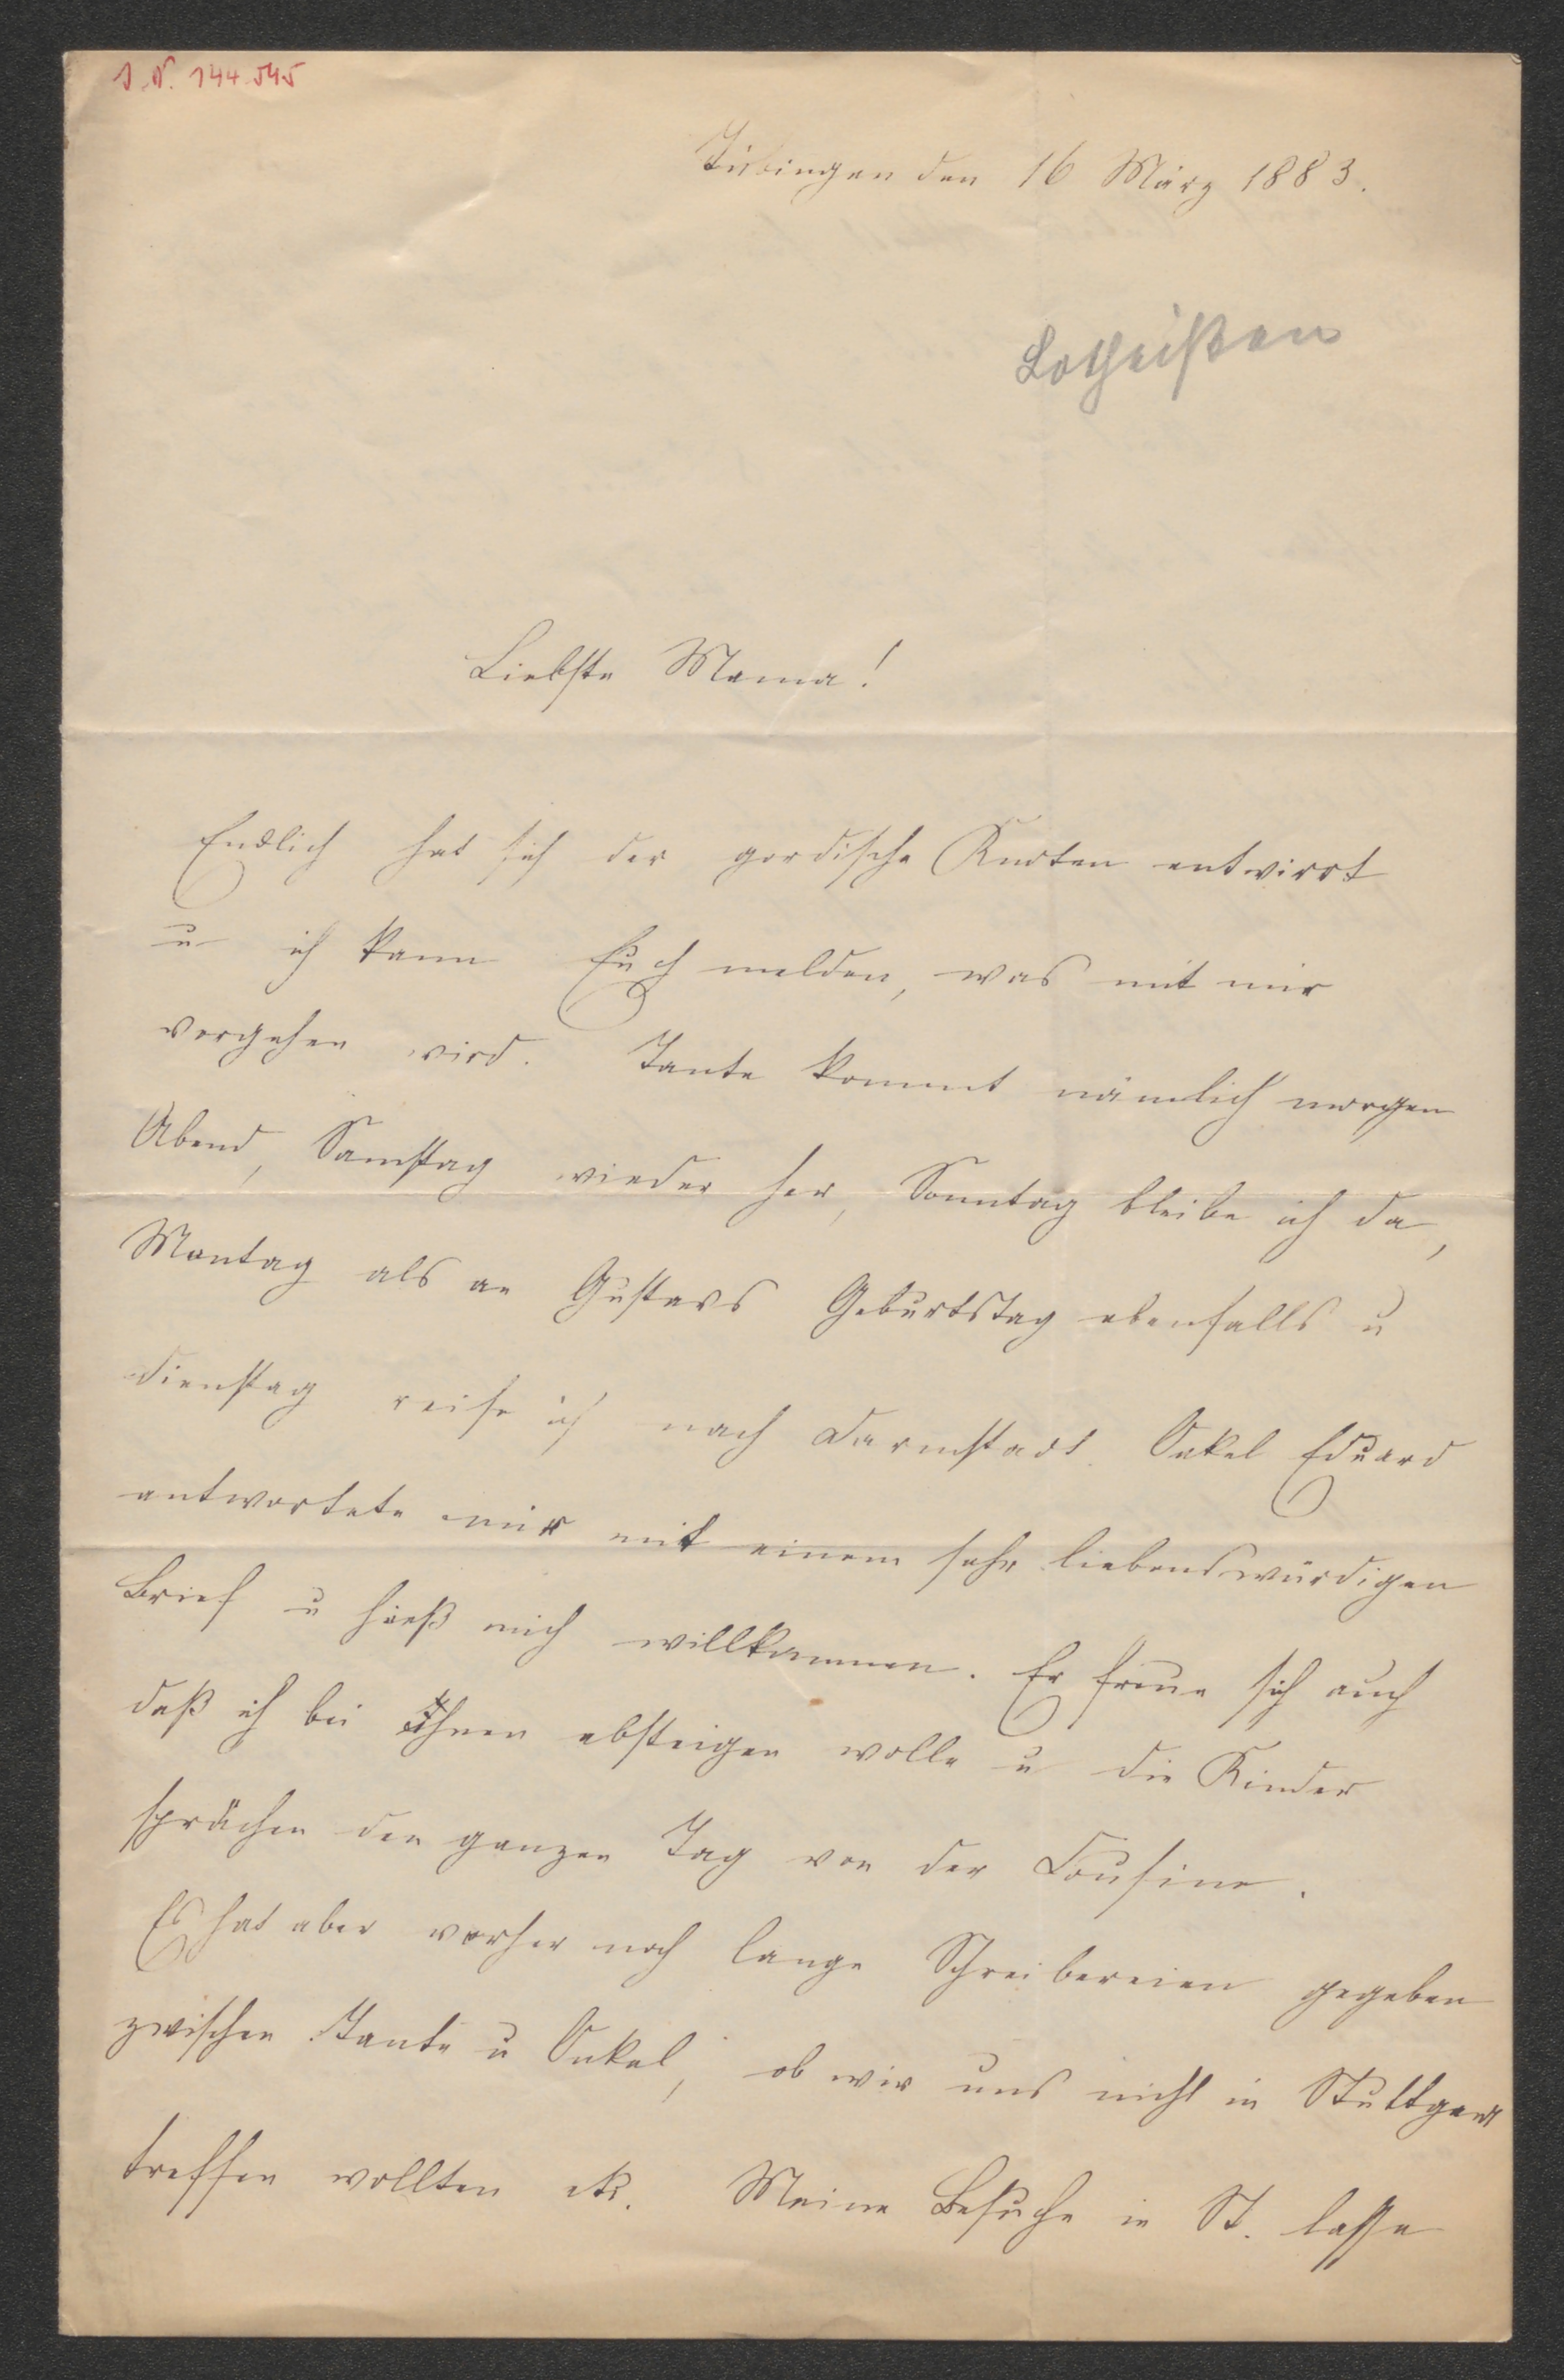 I.N. 144.545
Tübingen den 16 März 1883.
Lotheißen
Liebste Mama!
Endlich hat sich der gordische Knoten entwirrt
u ich kann Euch melden, was mit mir
vorgehen wird. Tante kommt nämlich morgen
Abend, Samstag wieder her, Sonntag bleibe ich da,
Montag als an Gustavs Geburtstag ebenfalls u
Dienstag reise ich nach Darmstadt. Onkel Eduard
antwortete mir mit einem sehr liebenswürdigen
Brief u hieß mich willkommen. Er freue sich auch
daß ich bei Ihnen absteigen wolle u die Kinder
sprächen den ganzen Tag von der Cousine.
Es hat aber vorher noch lange Schreibereien gegeben
zwischen Tante u Onkel, ob wir uns nicht in Stuttgart
treffen wollten etc. Meine Besuche in St. lasse